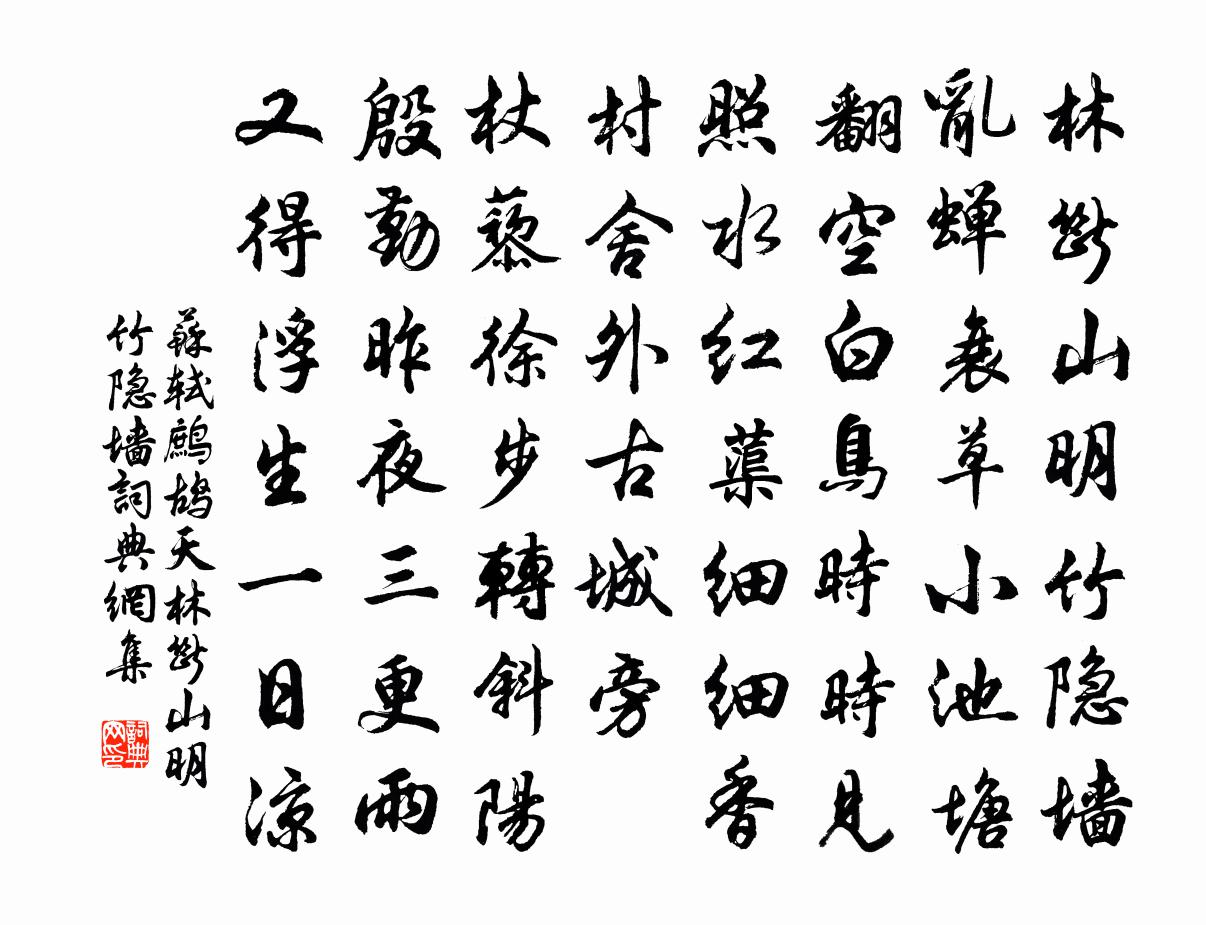 林斷山明竹隐墙
亂蝉衰草小池塘
翻空白鳥時時見
照水红蕖細細香
村舍外古城旁
杖藜徐步轉斜陽
殷勤昨夜三更雨
又得浮生一日凉
蘇轼鹧鸪天林斷山明
竹隐墙詞典網集
詞典
网印